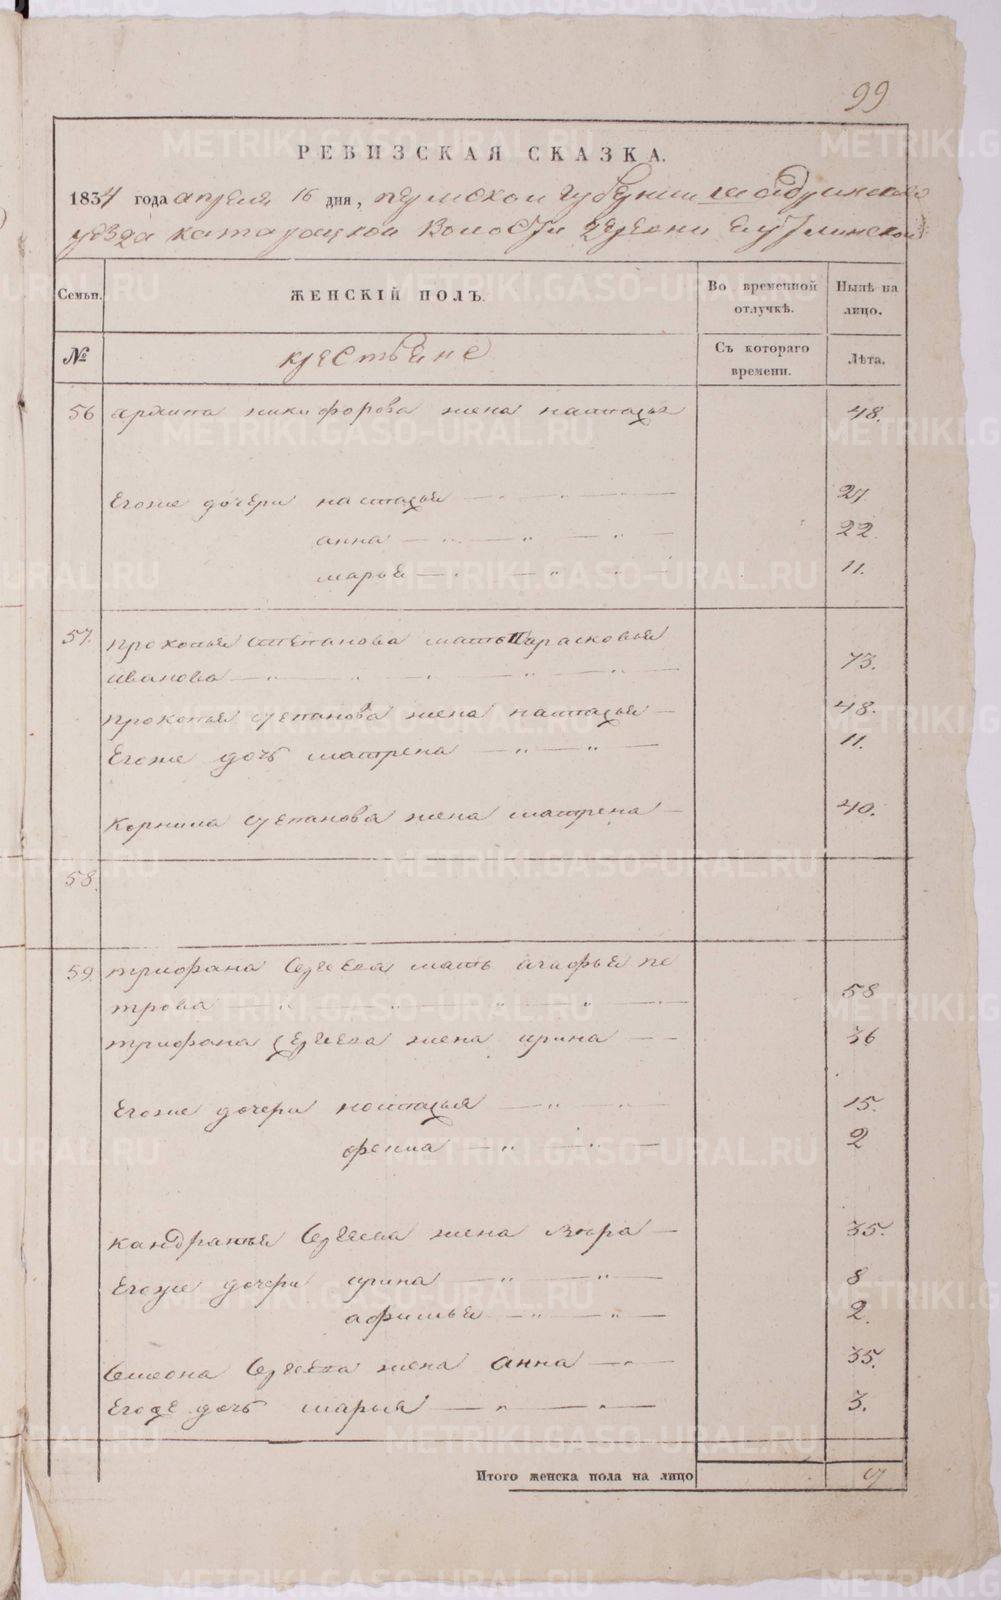 99
РЕВИЗСКАЯ СКАЗКА.
1834 года апреля 16 дня, пермской губернии шадринскаго
уезда катайской волости деревни
Семьи. ЖЕНСКІЙ ПОЛЪ. Во временной отлучкѣ. Нынѣ на лицо.
№ крестьяне Съ котораго времени. Лѣта.
56 архипа никифорова жена настасья 48.
Егоже дочери настасья 27
анна 22.
марья 11.
57. прокопья степанова мать Парасковья
иванова 73.
прокопья степанова жена настасья 48.
Егоже дочь матрена 11.
корнила степанова жена матрена 40.
58.
59. трифана сергеева мать агафья пе
трова 58
трифана сергеева жена ирина 36
Егоже дочери настасья 15.
фекла 2
кандратья сергеева жена вѣра 35.
Егоже дочери ирина 8
афимья 2.
семиона сергеева жена анна 35.
Егоже дочь марья 3.
Итого женска пола на лицо 17
METRIKI.GASO-URAL.RU